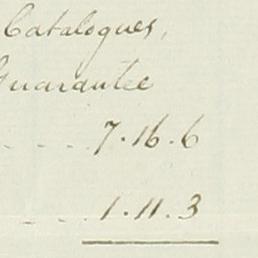 Catalogues,
Guarantee
7.16.6
1.11.3